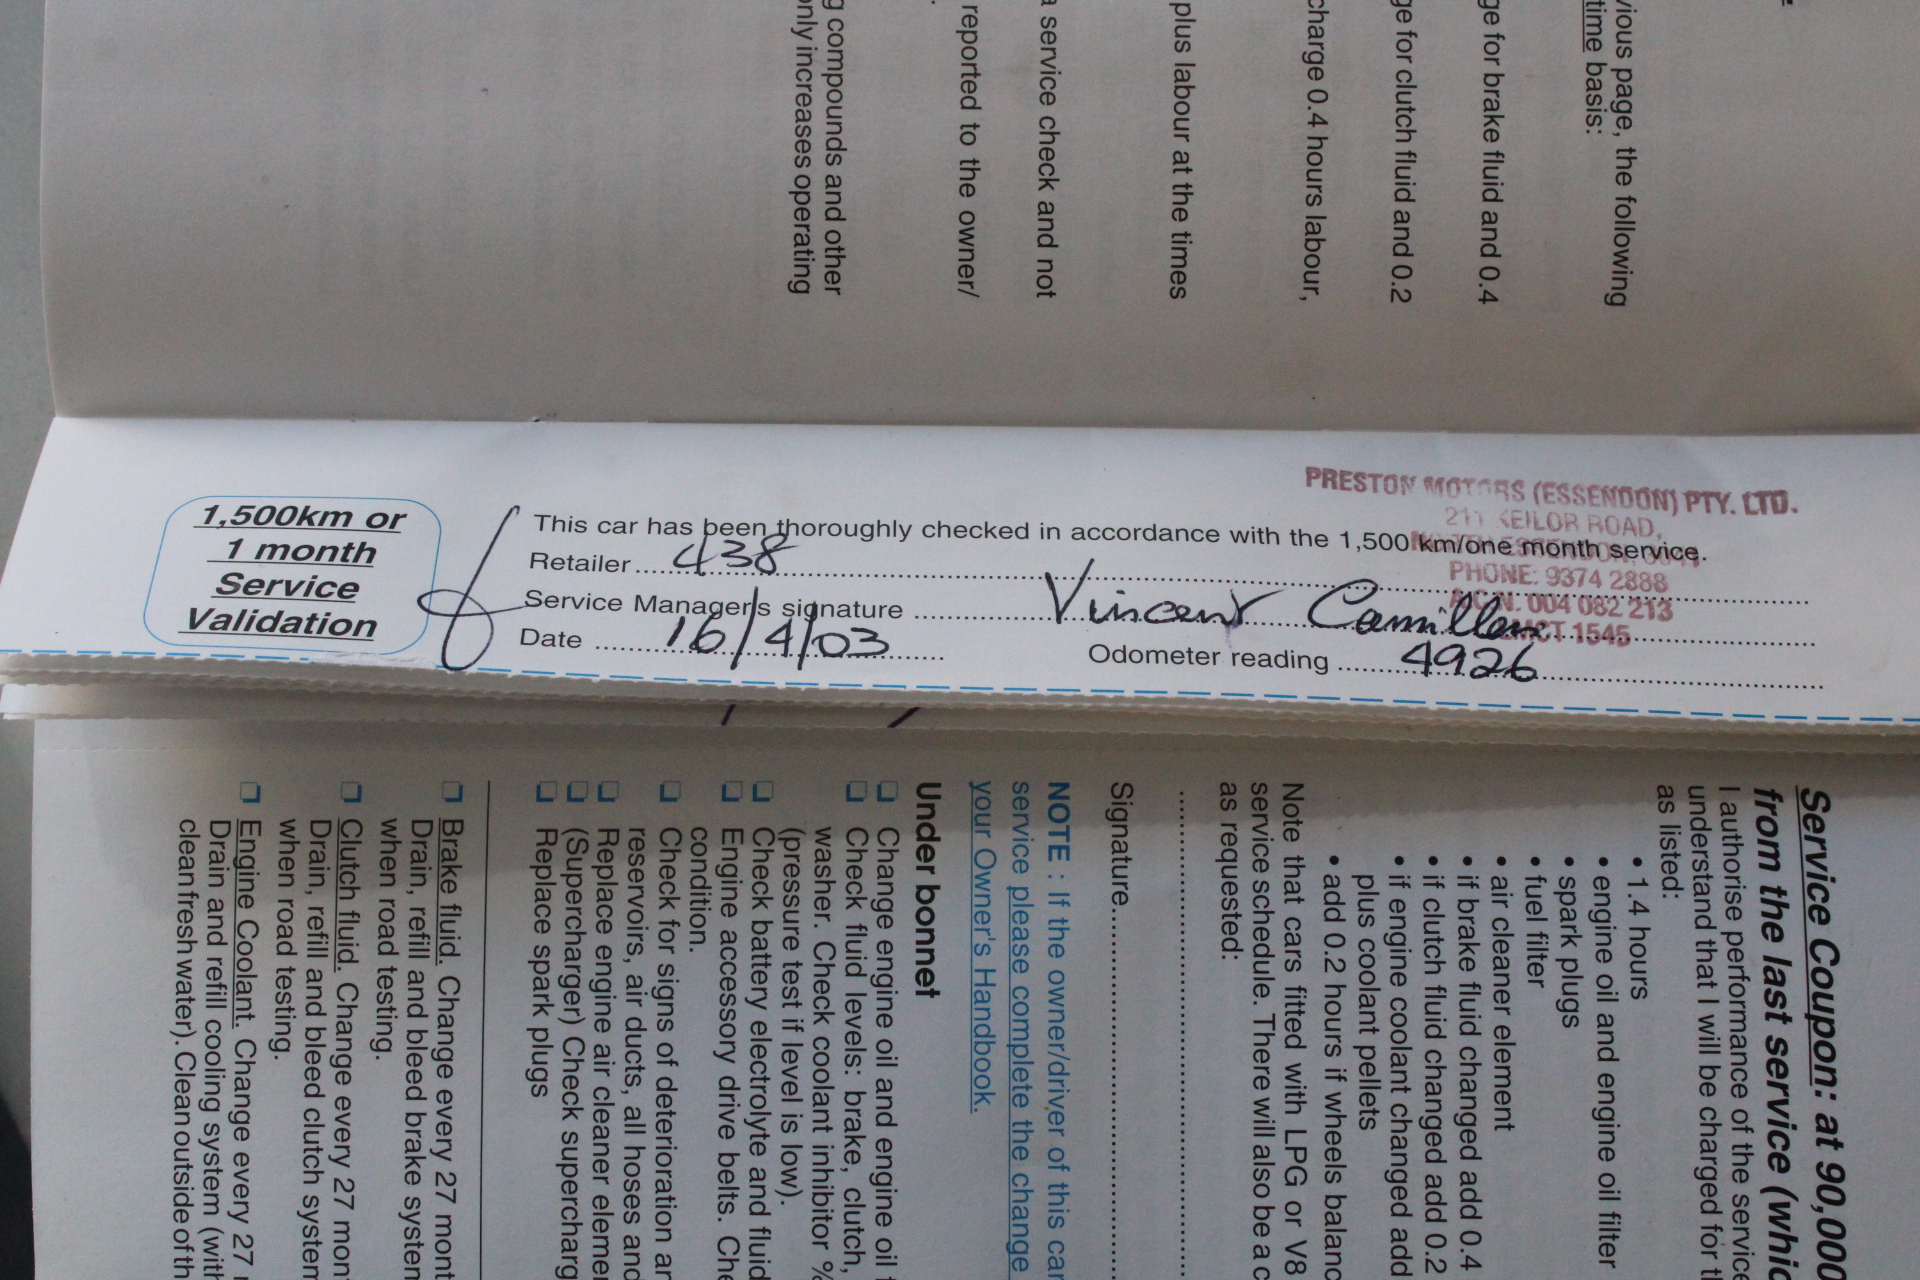 vious page, the following
time basis:
ge for brake fluid and 0.4
ge for clutch fluid and 0.2
charge 0.4 hours labour,
plus labour at the times
a service check and not
reported to the owner/
g compounds and other
only increases operating
1,500km or
1 month
Service
Validation
PRESTON MOTORS (ESSENDON) PTY. LTD.
211 KEILOR ROAD,
PHONE: 9374 2888
A.C.N. 004 082 213
LMCT 1545
This car has been thoroughly checked in accordance with the 1,500 km/one month service.
Retailer 438
Service Manager's signature Vincent Camilleri
Date 16/4/03
Odometer reading 4926
Service Coupon: at 90,000
from the last service (whic
I authorise performance of the service
understand that I will be charged for t
as listed:
• 1.4 hours
• engine oil and engine oil filter
• spark plugs
• fuel filter
• air cleaner element
• if brake fluid changed add 0.4
• if clutch fluid changed add 0.2
• if engine coolant changed add
plus coolant pellets
• add 0.2 hours if wheels balanc
Note that cars fitted with LPG or V8
service schedule. There will also be a c
as requested:
Signature
NOTE : If the owner/driver of this car
service please complete the change
your Owner's Handbook.
Under bonnet
❏ Change engine oil and engine oil f
❏ Check fluid levels: brake, clutch,
washer. Check coolant inhibitor %
(pressure test if level is low).
❏ Check battery electrolyte and fluid
❏ Engine accessory drive belts. Che
condition.
❏ Check for signs of deterioration an
reservoirs, air ducts, all hoses and
❏ Replace engine air cleaner elemen
❏ (Supercharger) Check supercharg
❏ Replace spark plugs
❏ Brake fluid. Change every 27 mont
Drain, refill and bleed brake system
when road testing.
❏ Clutch fluid. Change every 27 mon
Drain, refill and bleed clutch system
when road testing.
❏ Engine Coolant. Change every 27 m
Drain and refill cooling system (with
clean fresh water). Clean outside of th